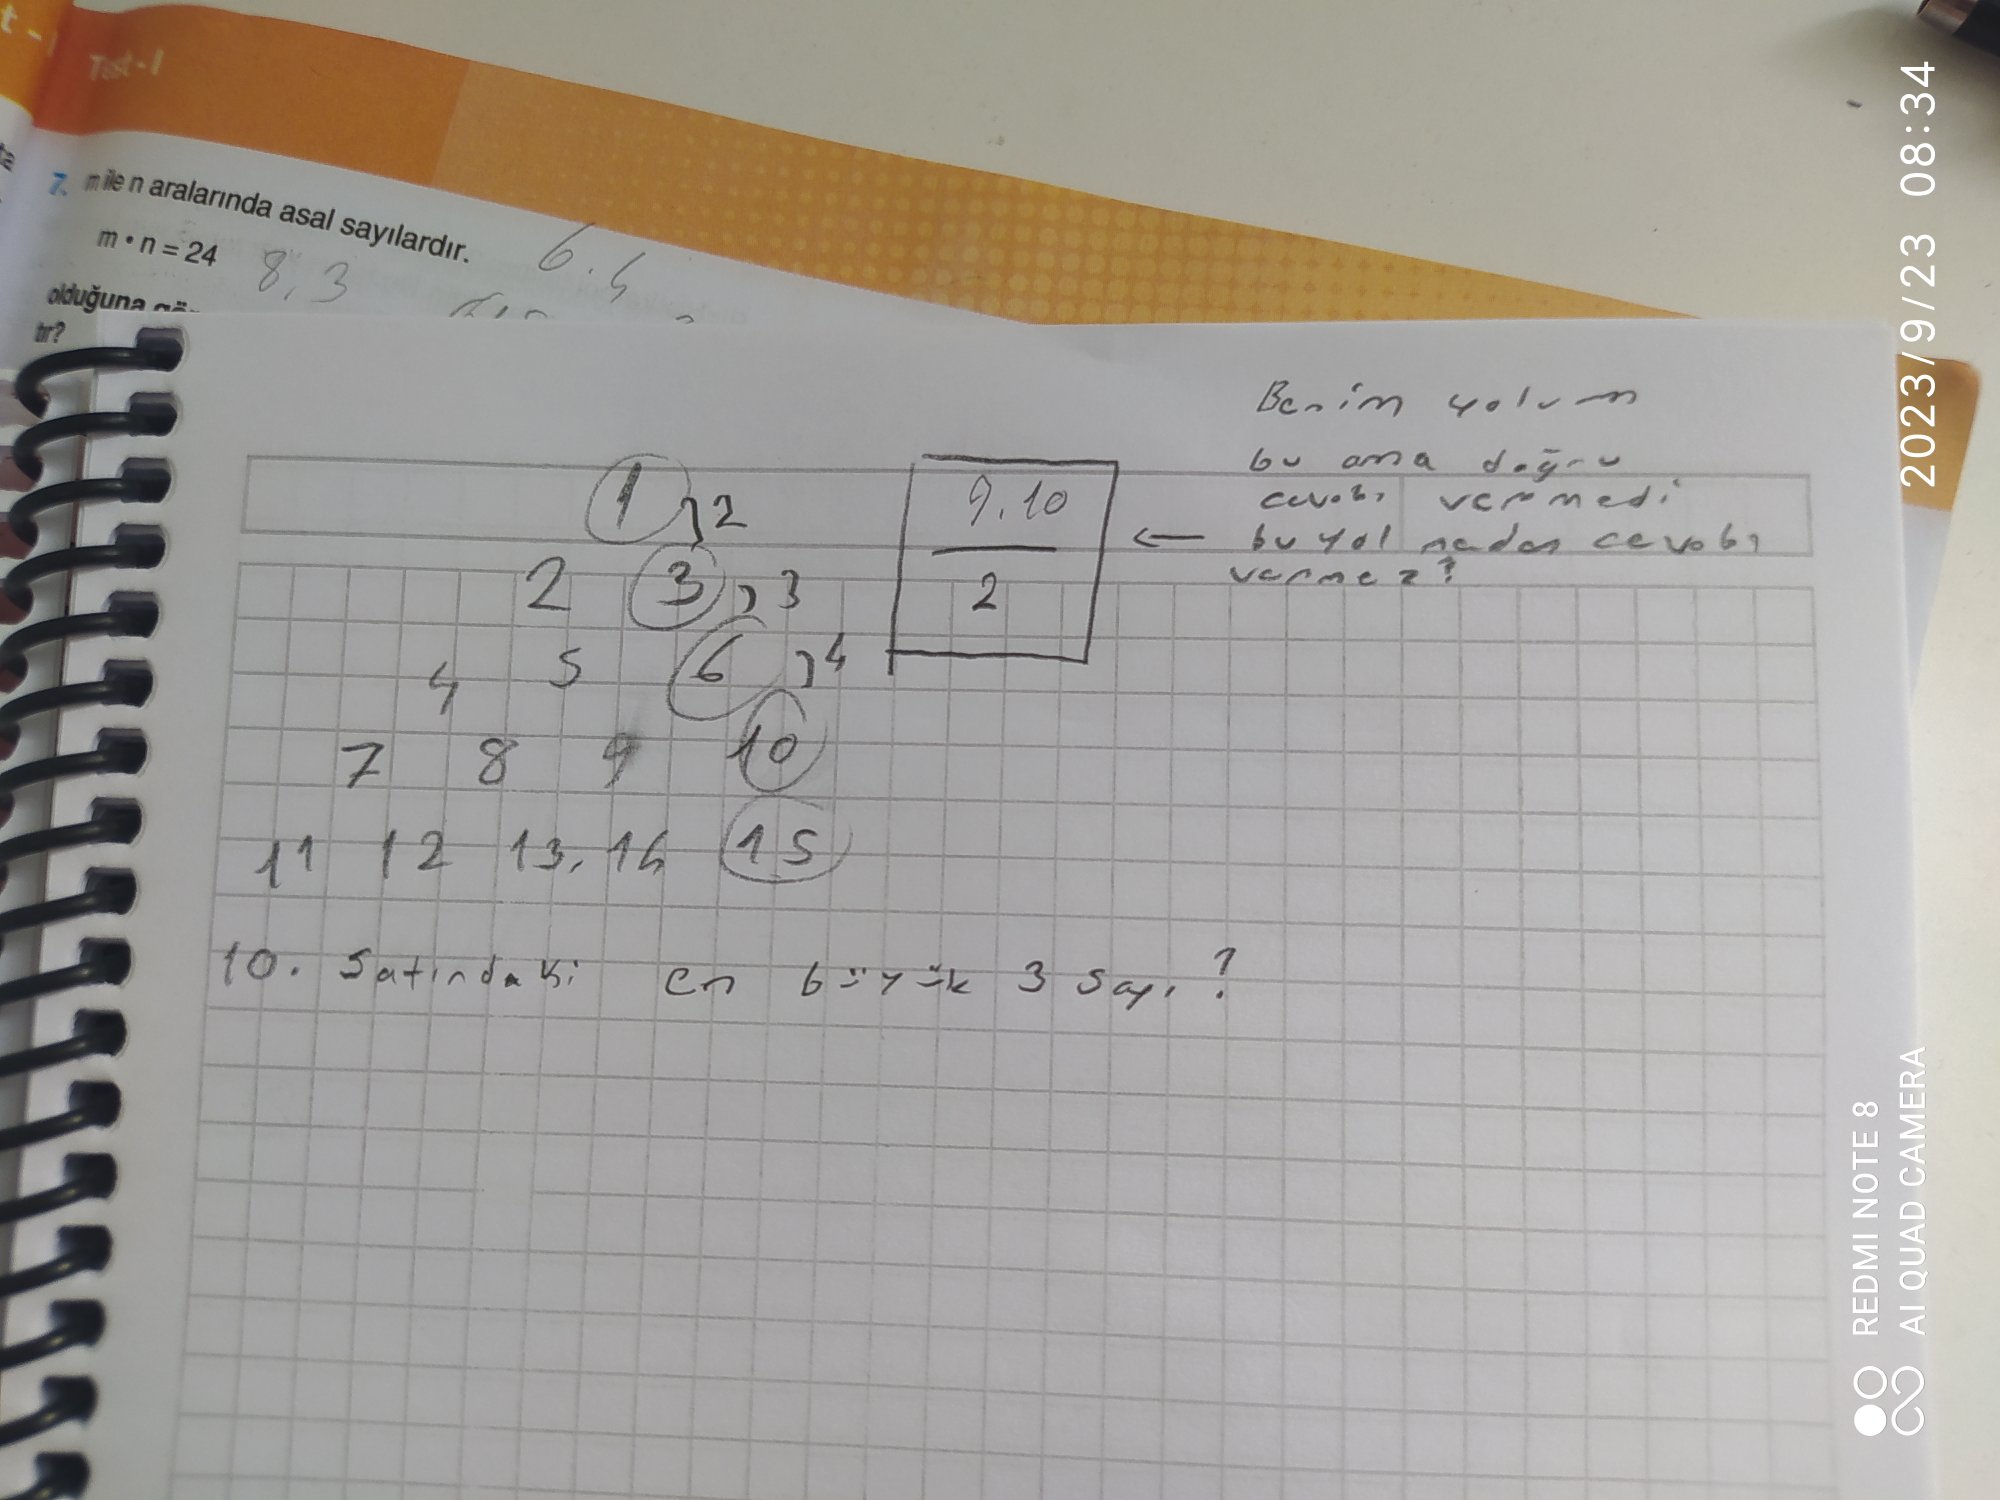 Test-1
7. m ile n aralarında asal sayılardır.
m • n = 24
8.3
6.4
olduğuna gör
tır?
Benim yolum
bu ama doğru
cevabı vermedi
bu yol neden cevabı
vermez?
←
9.10
2
1 2
2 3 3
4 5 6 4
7 8 9 10
11 12 13. 14 15
10. Satırdaki en büyük 3 sayı?
2023/9/23 08:34
REDMI NOTE 8
AI QUAD CAMERA